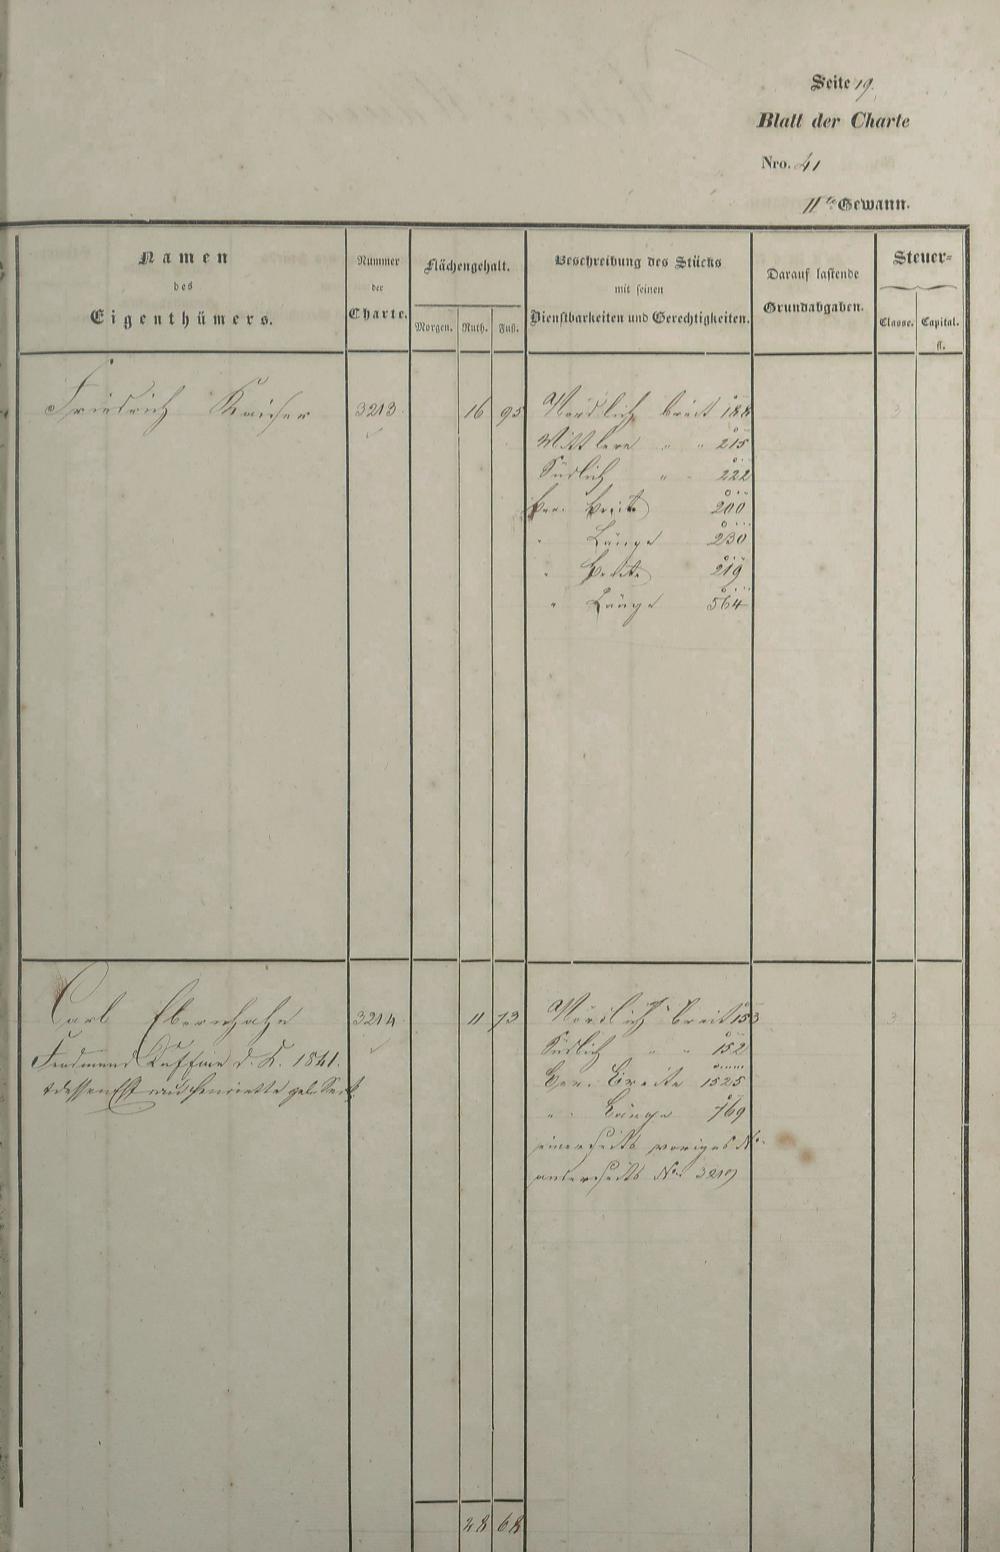 Seite 19.
Blatt der Charte
Nro. 41
11te Gewann.
Namen
des
Eigenthümers.
Nummer
der
Charte.
Flächengehalt.
Morgen. Ruth. Fuß.
Beschreibung des Stücks
mit seinen
Dienstbarkeiten und Gerechtigkeiten.
Darauf lastende
Grundabgaben.
Steuer-
Classe. Capital.
fl.
Friedrich Kaiser 3213 16 95 Nördlich breit 188 3
Mittlere " " 215
Südlich " " 222
Ber. Breite 200
" Länge 230
" Breite 219
" Länge 564
Carl Ebernhahn 3214 11 73 Nördlich breit 153 3
Südlich " " 152
Ber. Breite 1525
" Länge 769
einerseits voriges No.
anderseits No. 3219
Ferdinand d. K. 1841.
dessen Henriette geb.
28 68